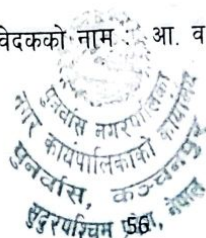 वेदकको नाम : आ. व
पुनर्वास नगरपालिका
नगर कार्यपालिकाको कार्यालय
पुनर्वास, कञ्चनपुर
सुदूरपश्चिम प्रदेश, नेपाल
56